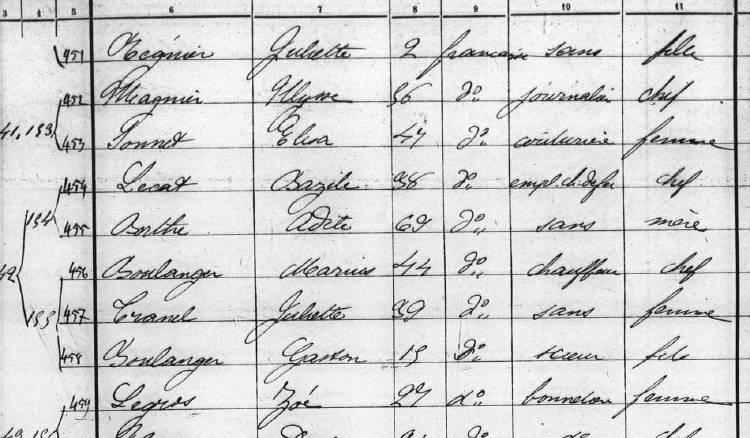 3 4 5 6 7 8 9 10 11
451 Régnier Juliette 2 française sans fille
452 Magnier Ulysse 56 do journalier chef
41 153 453 Sonnet Elisa 47 do couturière femme
454 Lecat Bazile 38 do empl. ch. de fer chef
154 455 Berthe Adèle 69 do sans mère
42 456 Boulanger Marius 44 do chauffeur chef
155 457 Cranel Juliette 39 do sans femme
458 Boulanger Gaston 15 do scieur fils
459 Legros Zoé 27 do femme